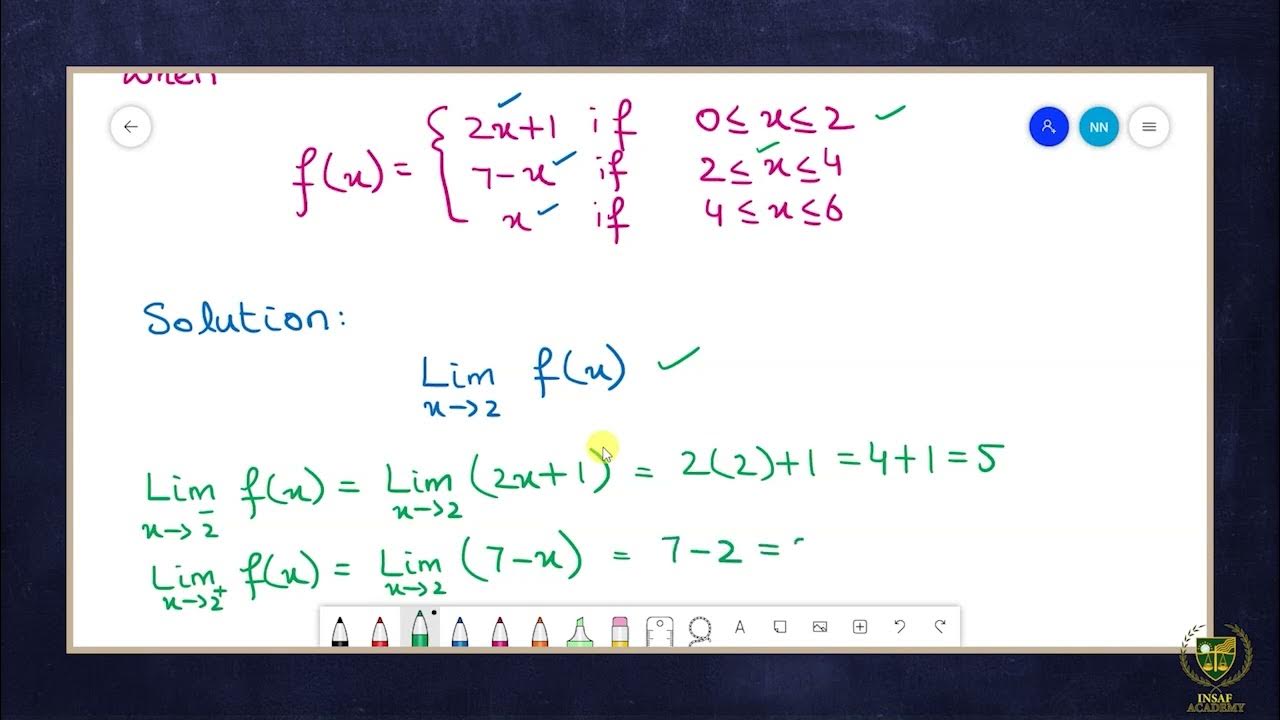 when
NN
f(x) = { 2x+1 if 0 ≤ x ≤ 2
7-x if 2 ≤ x ≤ 4
x if 4 ≤ x ≤ 6
Solution:
Lim x→2 f(x)
Lim x→2⁻ f(x) = Lim x→2 (2x+1) = 2(2)+1 = 4+1 = 5
Lim x→2⁺ f(x) = Lim x→2 (7-x) = 7-2 =
A
INSAF
ACADEMY